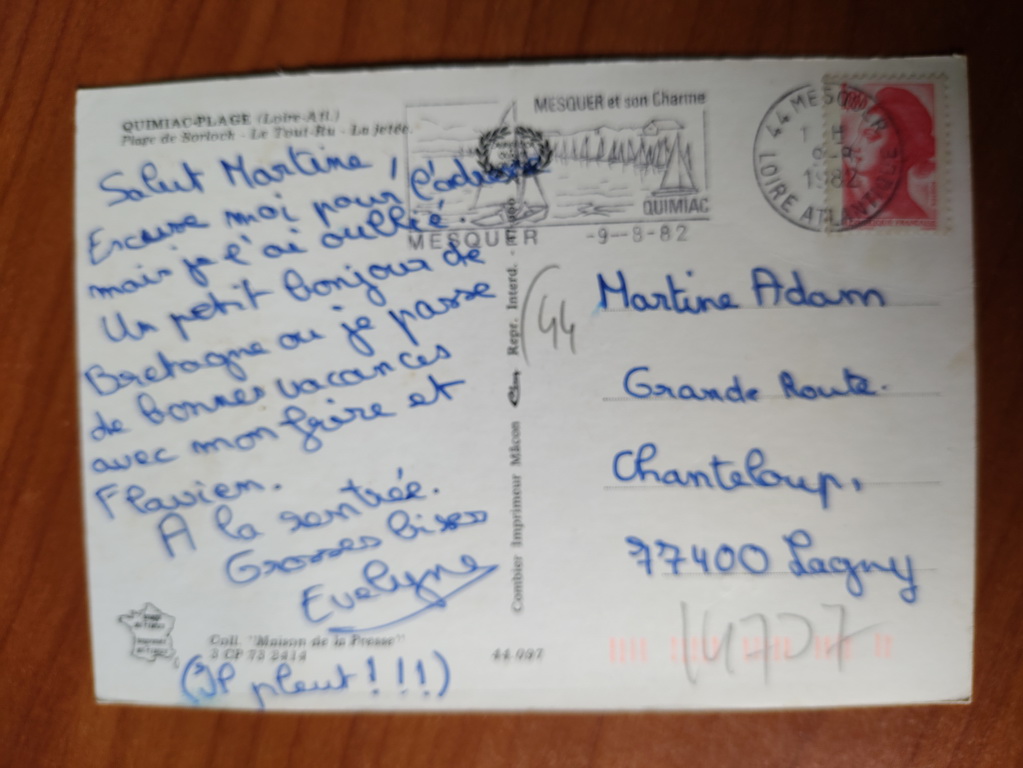 QUIMIAC-PLAGE (Loire-Atl.)
Plage de Sorloch - Le Tout-Ru - La jetée.
MESQUER et son Charme
QUIMIAC
MESQUER -9--8-82
44 MESQUER
1982
LOIRE ATLANTIQUE
Salut Martine !
Excuse moi pour l'adresse
mais je l'ai oublié.
Un petit bonjour de
Bretagne ou je passe
de bonnes vacances
avec mon frère et
Flavien.
A la rentrée.
Grosses bises
Evelyne
(Il pleut!!!)
Coll. "Maison de la Presse"
3 CP 73 2414
44 097
Combier Imprimeur Mâcon
Repr. Interd.
(44
Martine Adam
Grande Route.
Chanteloup,
77400 Lagny